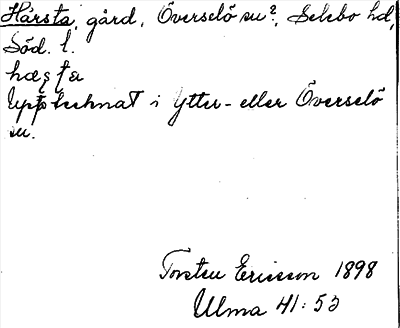 Hársta, gård, Överselö sn?, Selebo hd,
Söd. l.
Upptecknat i Ytter- eller Överselö
sn.
Torsten Ericsson 1898
Ulma 41:53